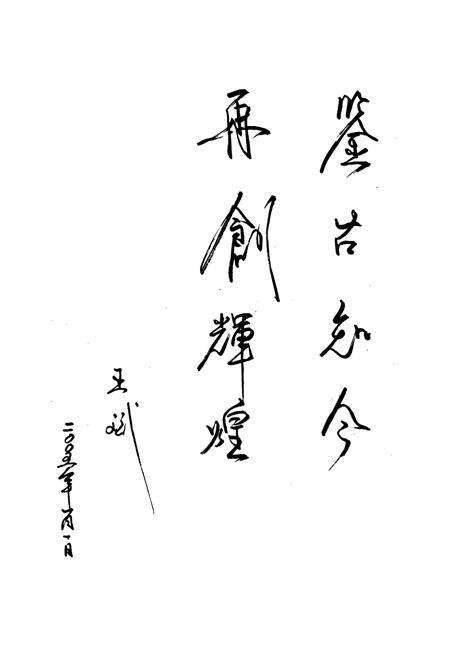 鉴古知今
再創輝煌
王
二〇〇五年月一日